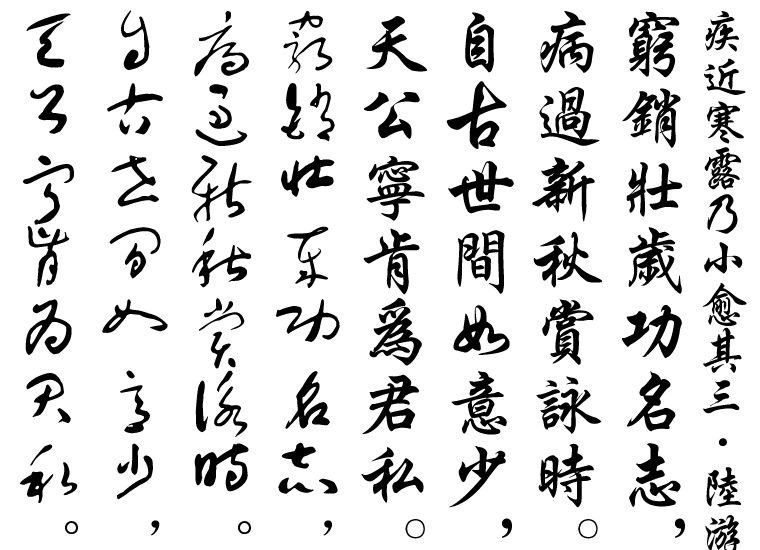 疾近寒露乃小愈其三・陸游
窮銷壯歲功名志，
病過新秋賞詠時。
自古世間如意少，
天公寧肯爲君私。
窮銷壯歲功名志，
病過新秋賞詠時。
自古世間如意少，
天公寧肯爲君私。